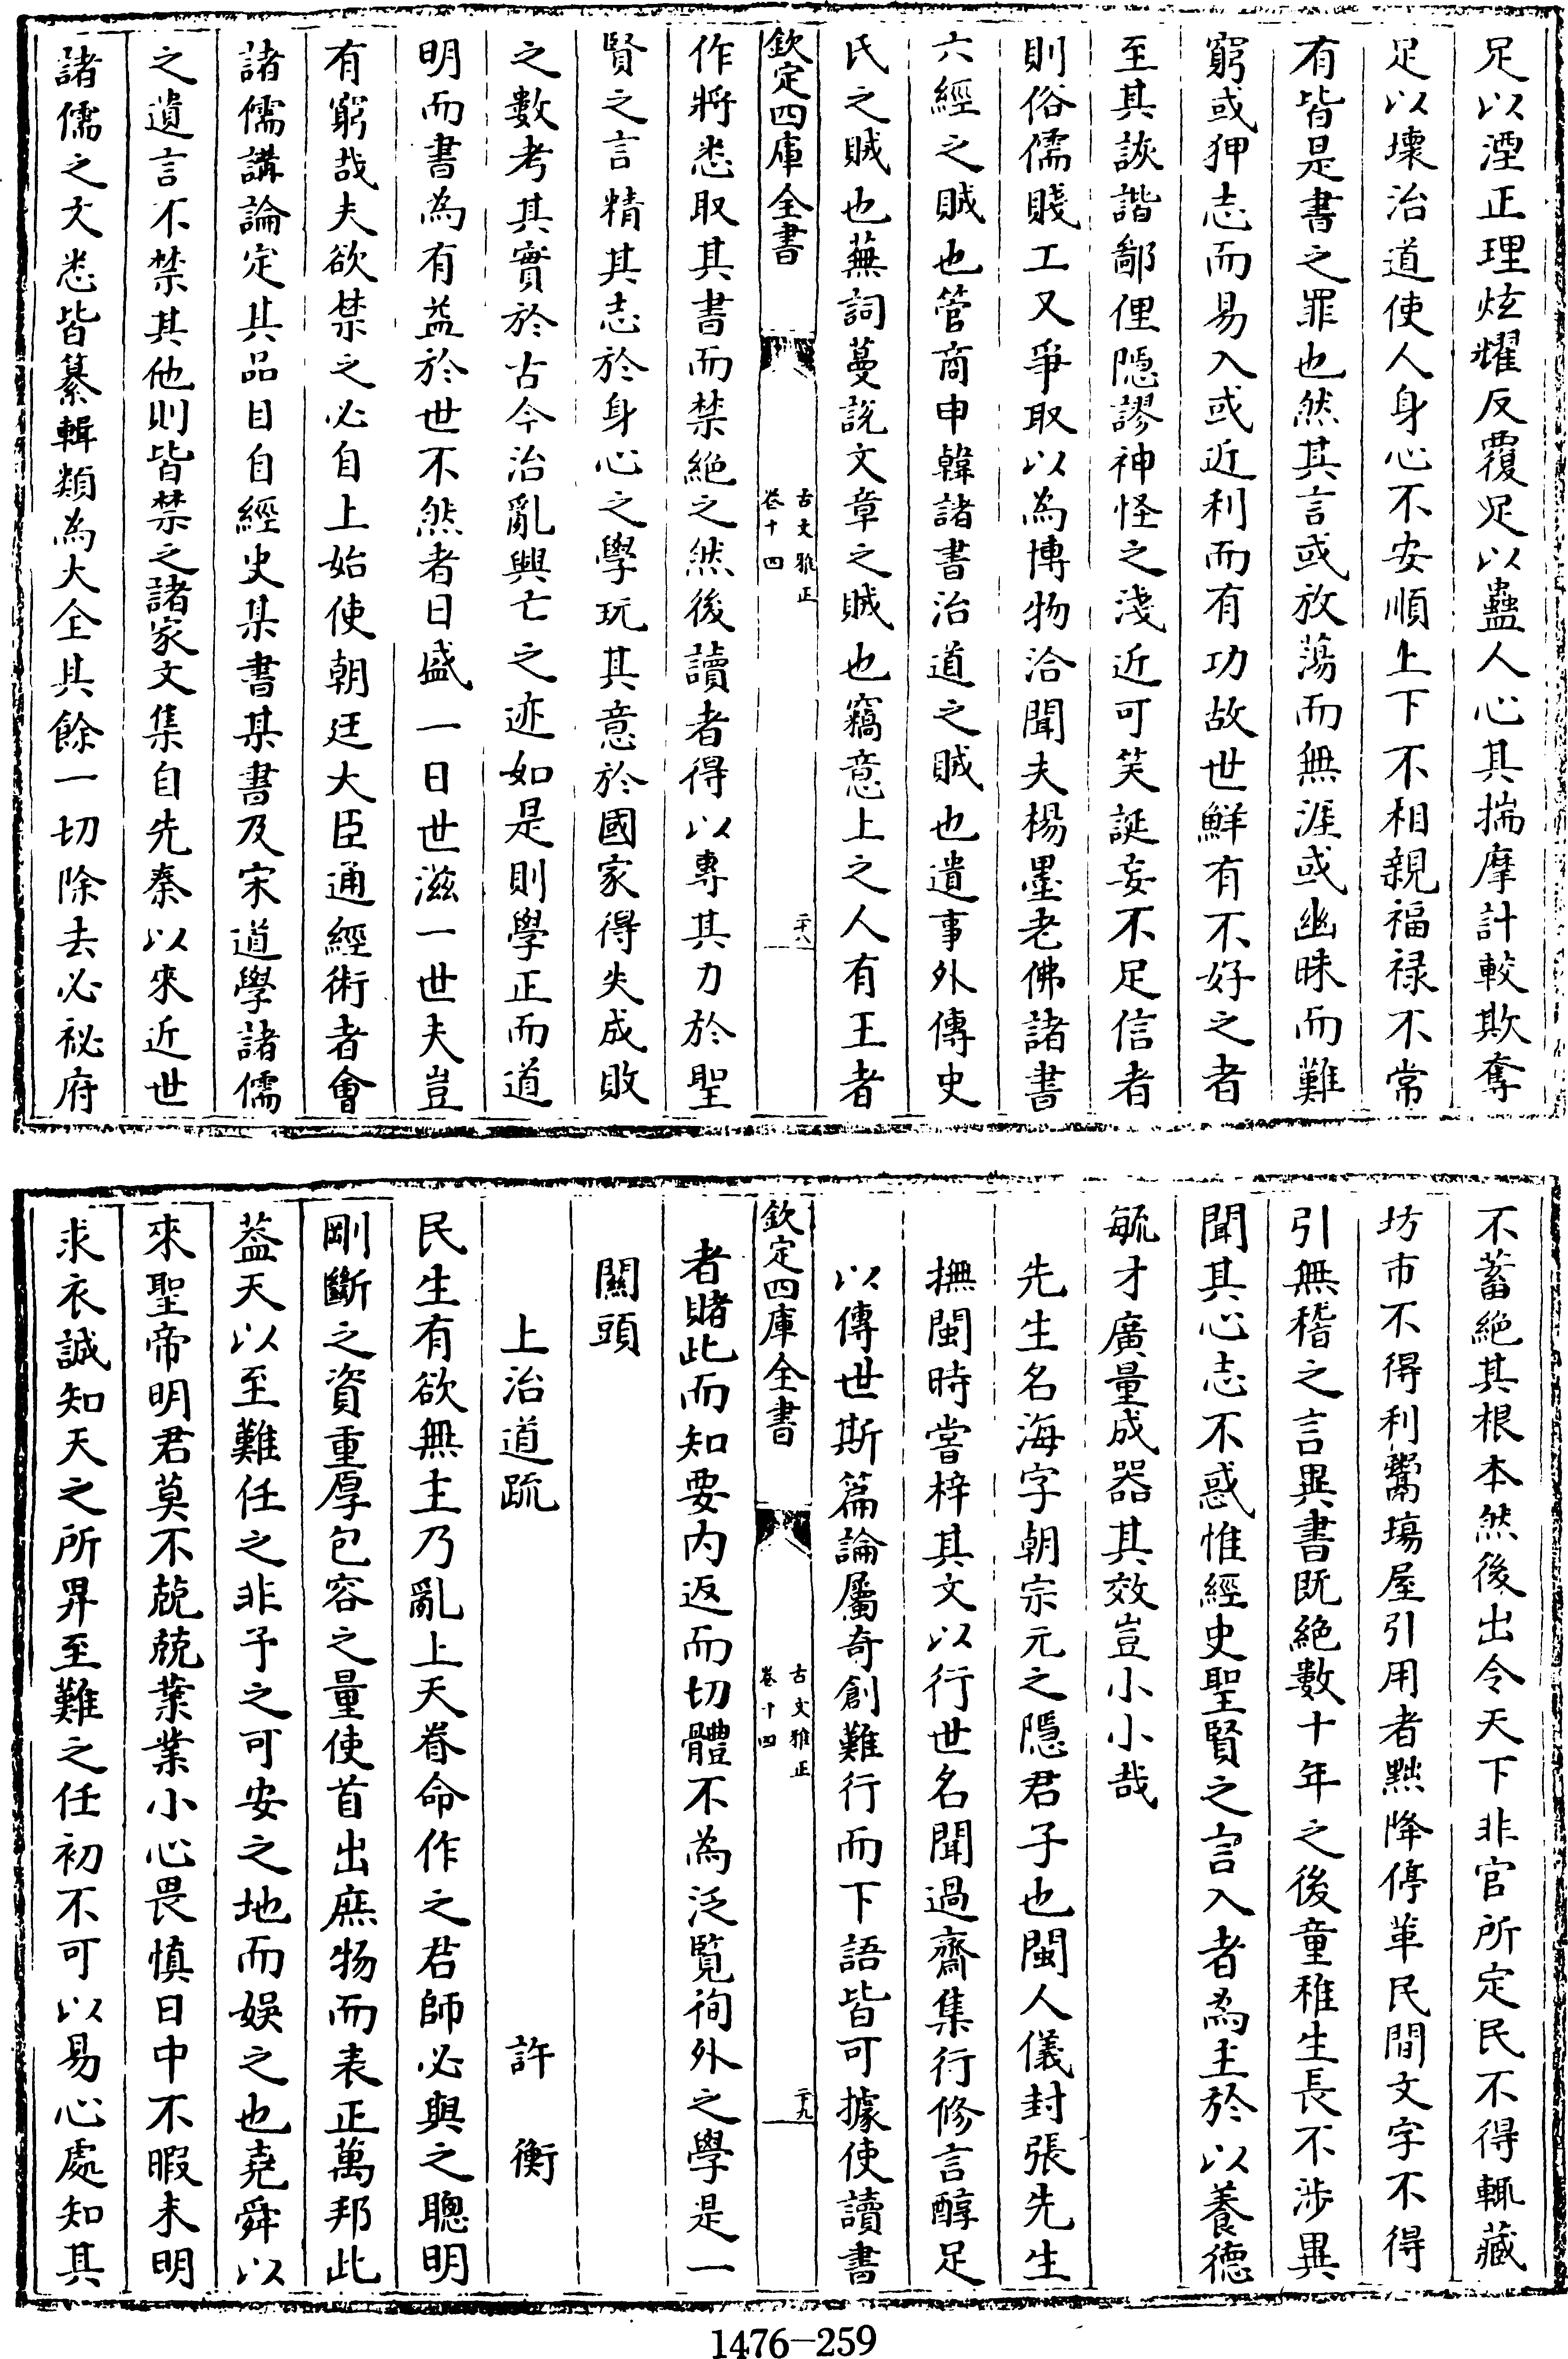 足以湮正理炫耀反覆足以蠱人心其揣摩計較欺奪
足以壞治道使人身心不安順上下不相親福祿不常
有皆是書之罪也然其言或放蕩而無涯或幽昧而難
窮或狎志而易入或近利而有功故世鮮有不好之者
至其詼諧鄙俚隱謬神怪之淺近可笑誕妄不足信者
則俗儒賤工又爭取以為博物洽聞夫楊墨老佛諸書
六經之賊也管商申韓諸書治道之賊也遺事外傳史
氏之賊也蕪詞蔓説文章之賊也竊意上之人有王者
欽定四庫全書
古文雅正
卷十四
二十八
作將悉取其書而禁絶之然後讀者得以專其力於聖
賢之言精其志於身心之學玩其意於國家得失成敗
之數考其實於古今治亂興亡之迹如是則學正而道
明而書為有益於世不然者日盛一日世滋一世夫豈
有窮哉夫欲禁之必自上始使朝廷大臣通經術者會
諸儒講論定其品目自經史某書某書及宋道學諸儒
之遺言不禁其他則皆禁之諸家文集自先秦以來近世
諸儒之文悉皆纂輯類為大全其餘一切除去必祕府
不蓄絶其根本然後出令天下非官所定民不得輒藏
坊市不得利鬻塲屋引用者黜降停革民間文字不得
引無稽之言異書既絶數十年之後童稚生長不渉異
聞其心志不惑惟經史聖賢之言入者為主於以養德
毓才廣量成器其效豈小小哉
先生名海字朝宗元之隱君子也閩人儀封張先生
撫閩時嘗梓其文以行世名聞過齋集行修言醇足
以傳世斯篇論屬奇創難行而下語皆可據使讀書
欽定四庫全書
古文雅正
卷十四
二十九
者賭此而知要内返而切體不為泛覧徇外之學是一
關頭
上治道疏　許衡
民生有欲無主乃亂上天眷命作之君師必與之聰明
剛斷之資重厚包容之量使首出庶物而表正萬邦此
葢天以至難任之非予之可安之地而娯之也堯舜以
來聖帝明君莫不兢兢業業小心畏慎日中不暇未明
求衣誠知天之所畀至難之任初不可以易心處知其
1476-259